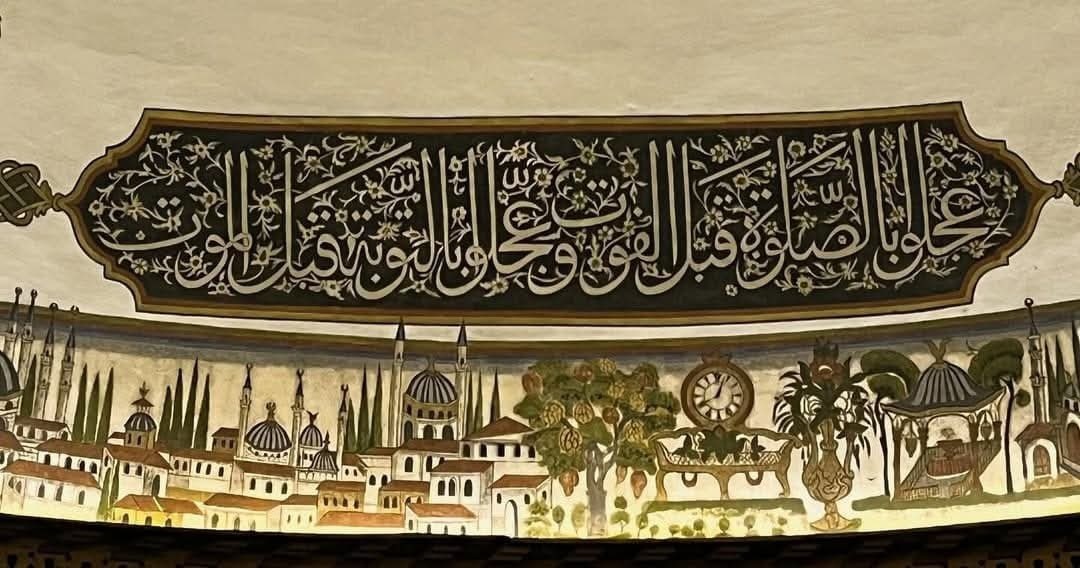 عجلوا بالصلوة قبل الفوت وعجلوا بالتوبة قبل الموت